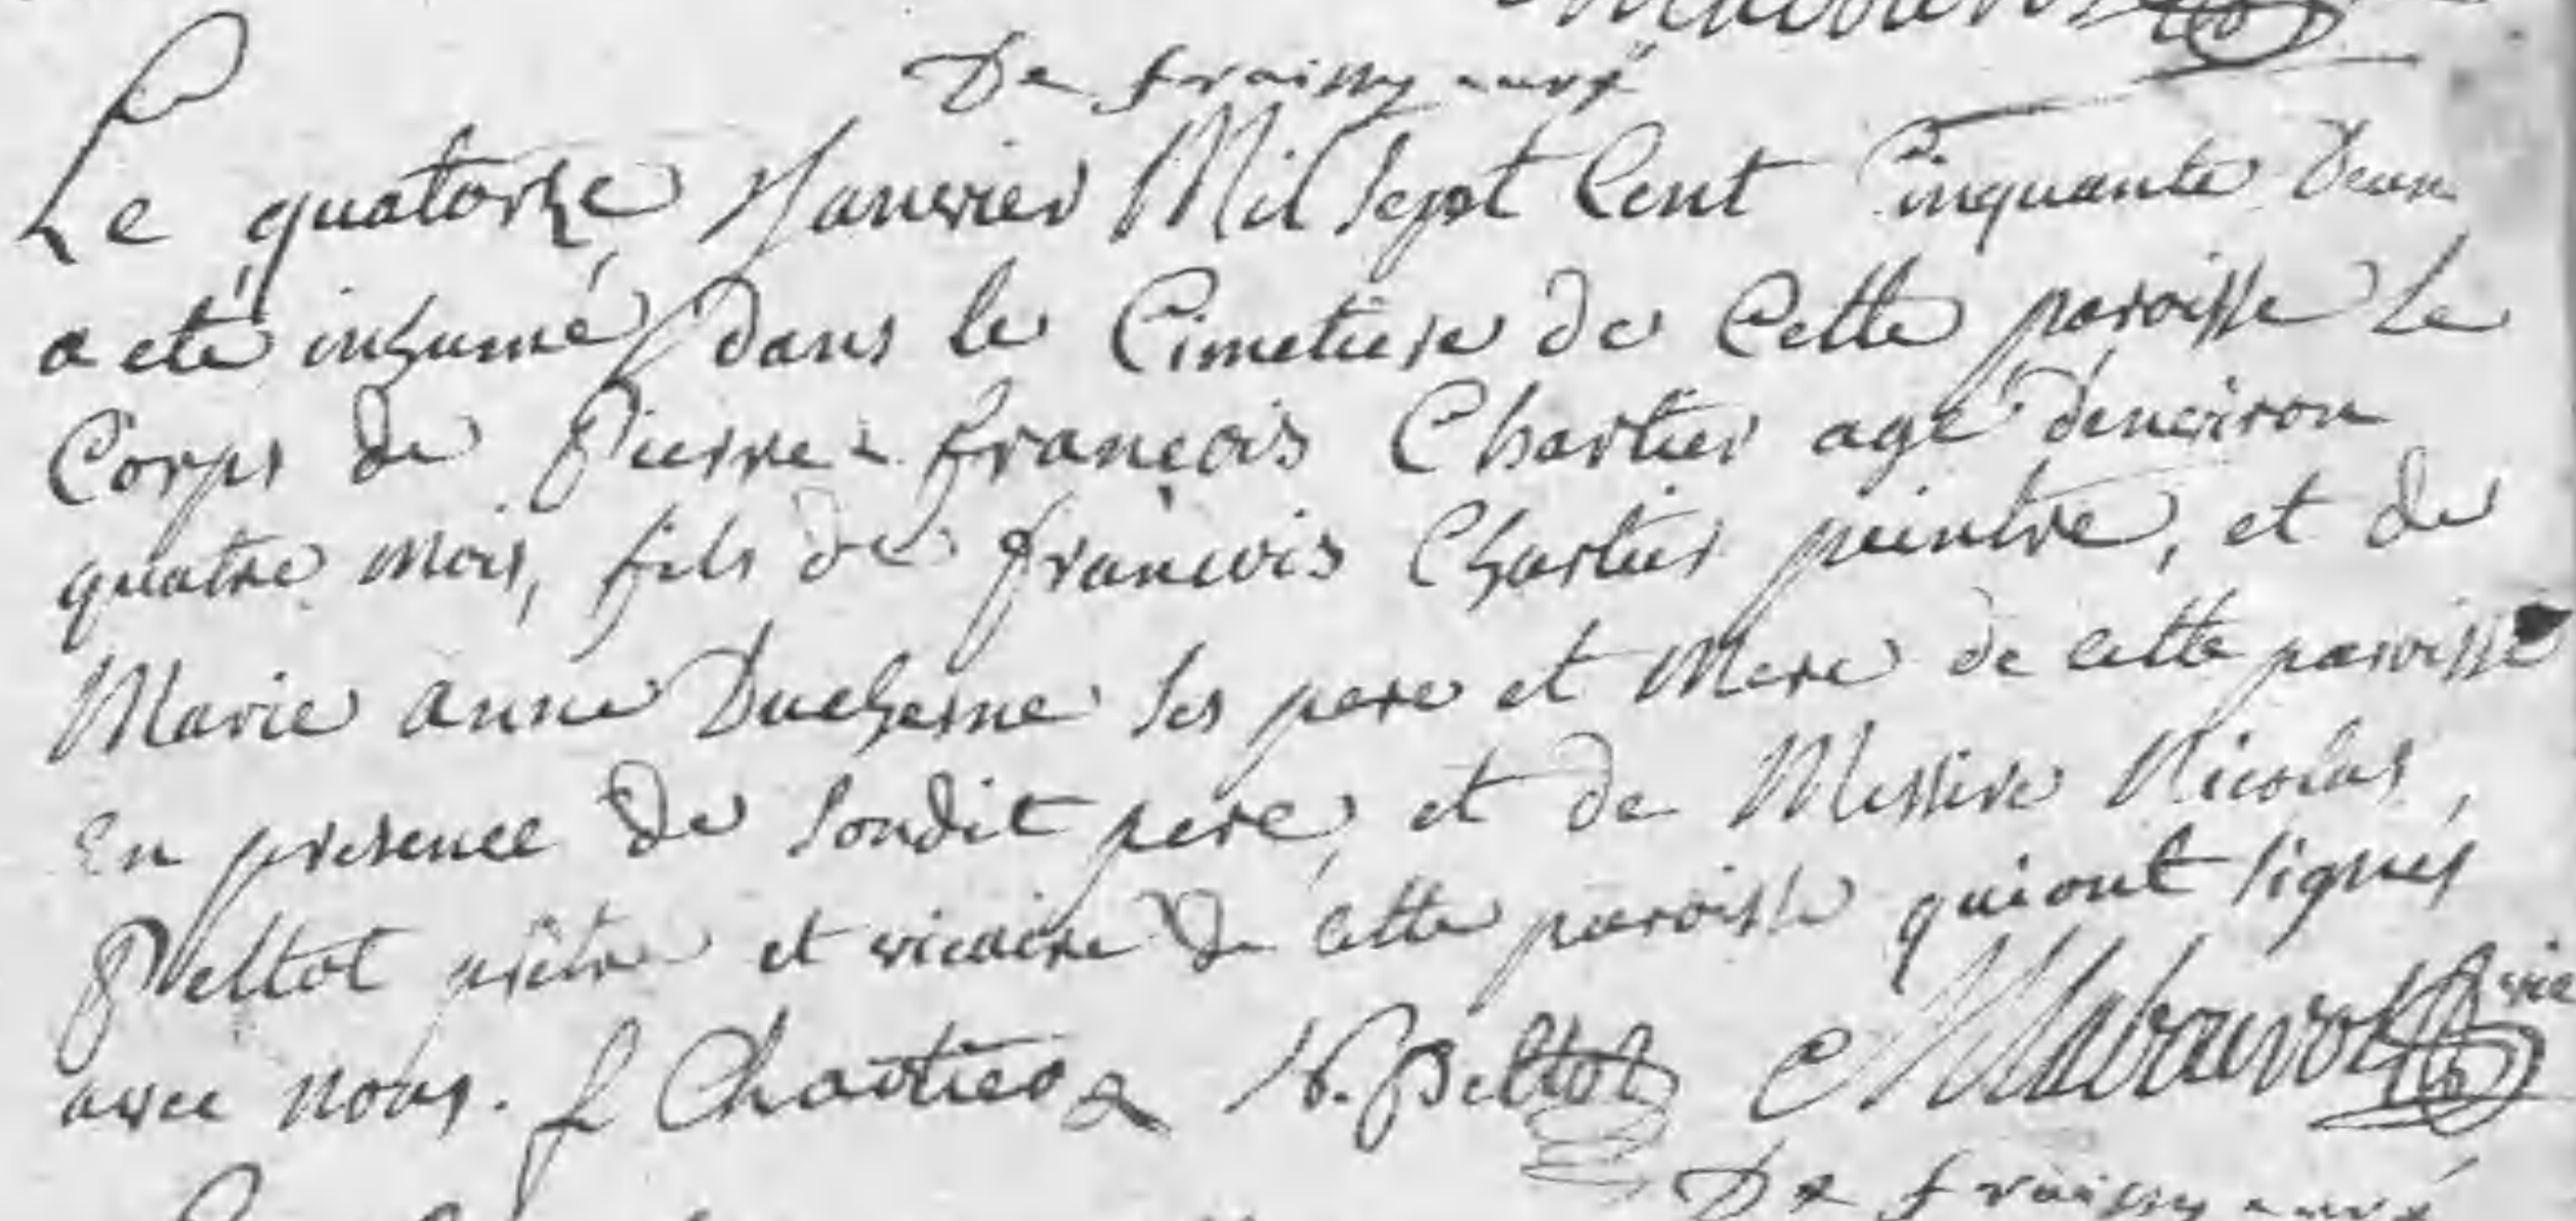 De fraissy curé
Le quatorze Janvier Mil Sept Cent Cinquante Deux
a eté inhumé dans le Cimetiere de Cette paroisse Le
Corps de Pierre françois Chartier agé denviron
quatre mois, fils de françois Chartier peintre, et de
Marie anne Duchesne Ses pere et Mere de cette paroisse
En presence de Sondit pere, et de Messire Nicolas
Peltot prêtre et vicaire de cette paroisse qui ont signés
avec nous. f Chartier N. Peltot vic
De fraissy curé